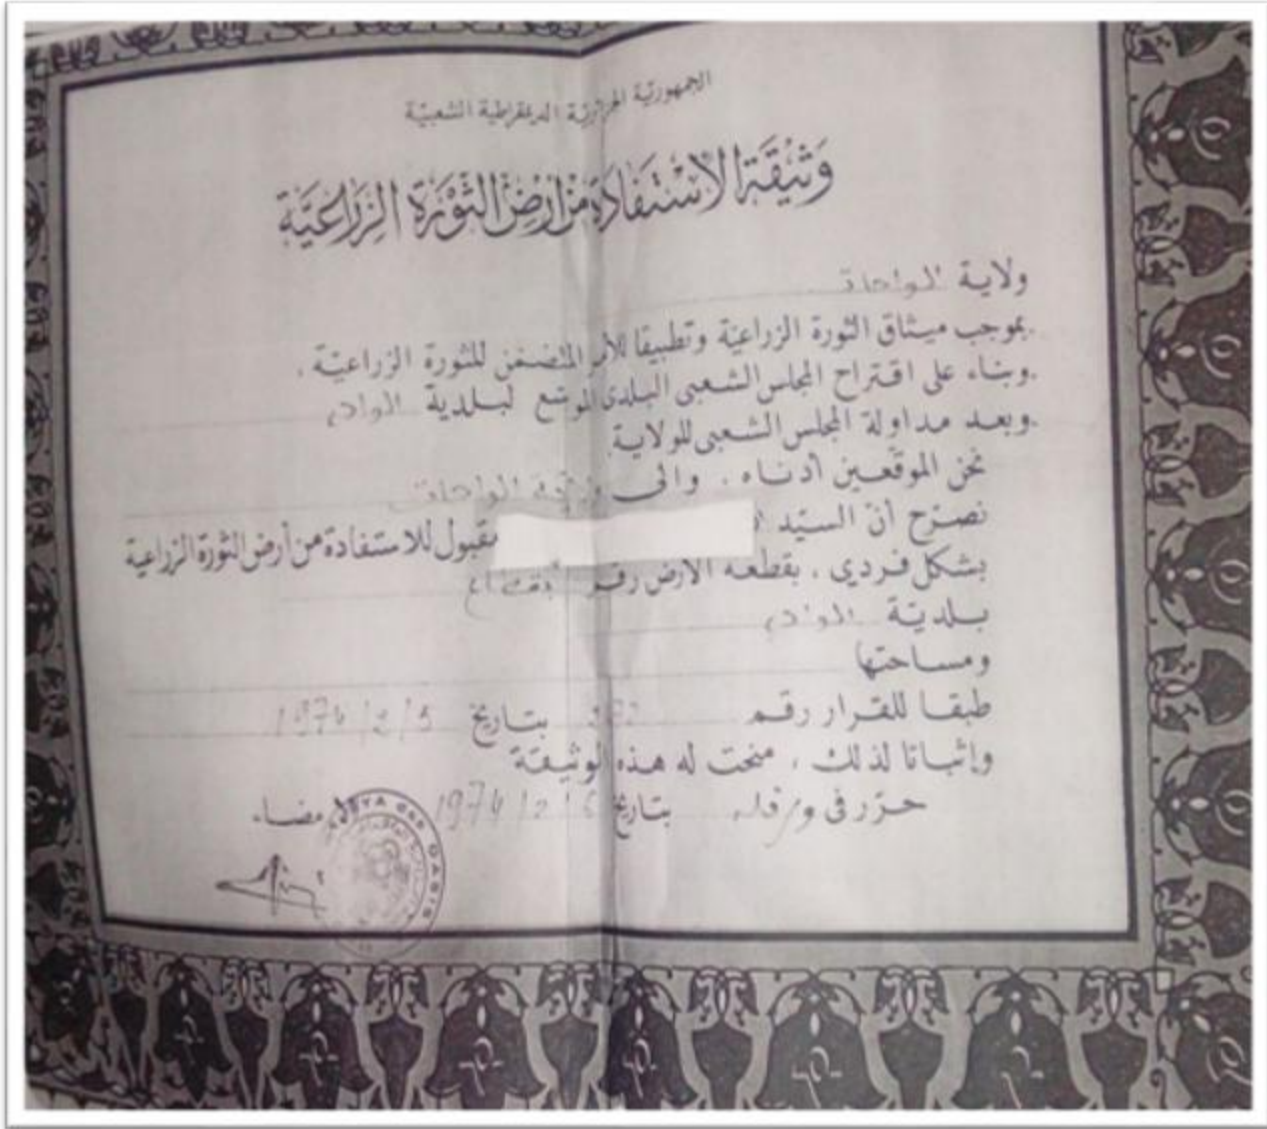 الجمهورية الجزائرية الديمقراطية الشعبية
وَثيقَة الاسْتفَادَة مِن أرْضِ الثَّوْرَة الزِرَاعيَّة
ولاية الواحات
.بموجب ميثاق الثورة الزراعية وتطبيقا للأمر المتضمن للثورة الزراعية .
.وبناء على اقتراح المجلس الشعبي البلدي الموسع لبلدية الوادي
.وبعد مداولة المجلس الشعبي للولاية
نحن الموقعين أدناه . والى ولاية الواحات
نصرح أن السيد مقبول للاستفادة من أرض الثورة الزراعية
بشكل فردى . بقطعة الأرض رقم
بلدية الوادي
ومساحتها
طبقا للقرار رقم بتاريخ 1974/2/5
وإثباتا لذلك . منحت له هذه الوثيقة
حرر في ورقلة بتاريخ 1974/2/ الإمضاء
WILAYA des OASIS